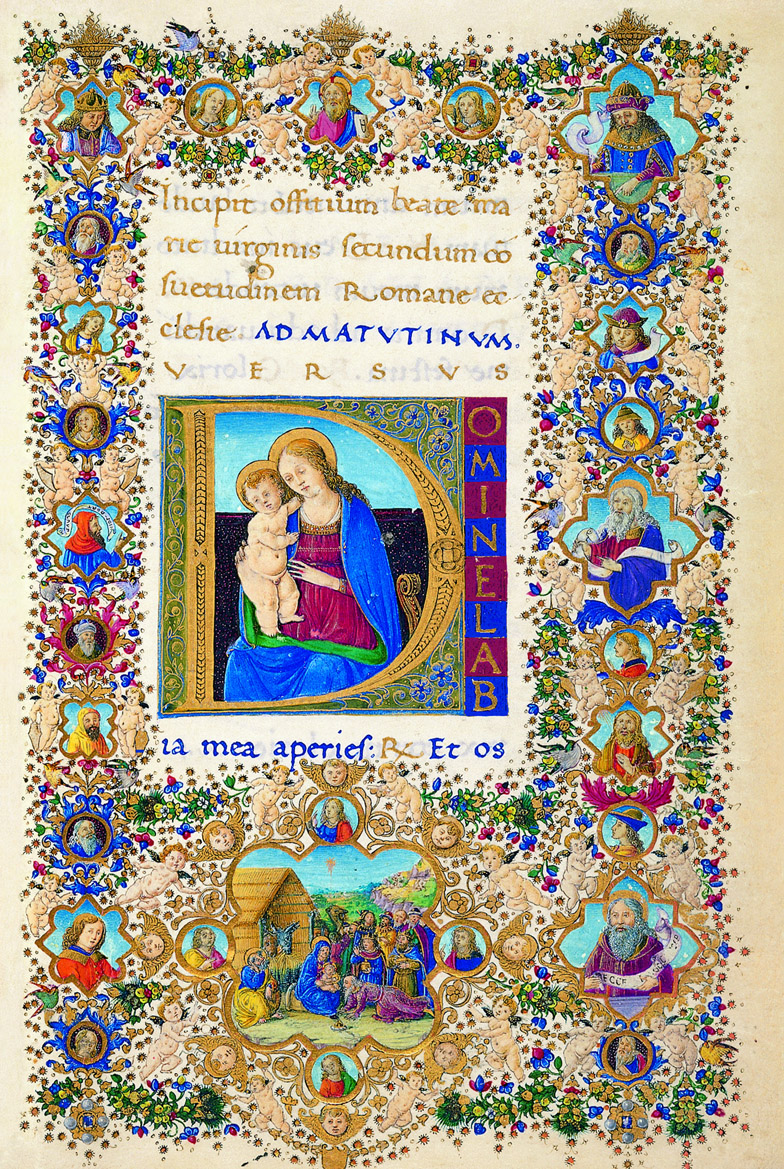 Incipit offitium beate ma
rie virginis secundum cō
suetudinem Romane ec
clesie AD MATVTINVM.
V E R S V S
DOMINE LAB
ia mea aperies: R Et os
ECCE